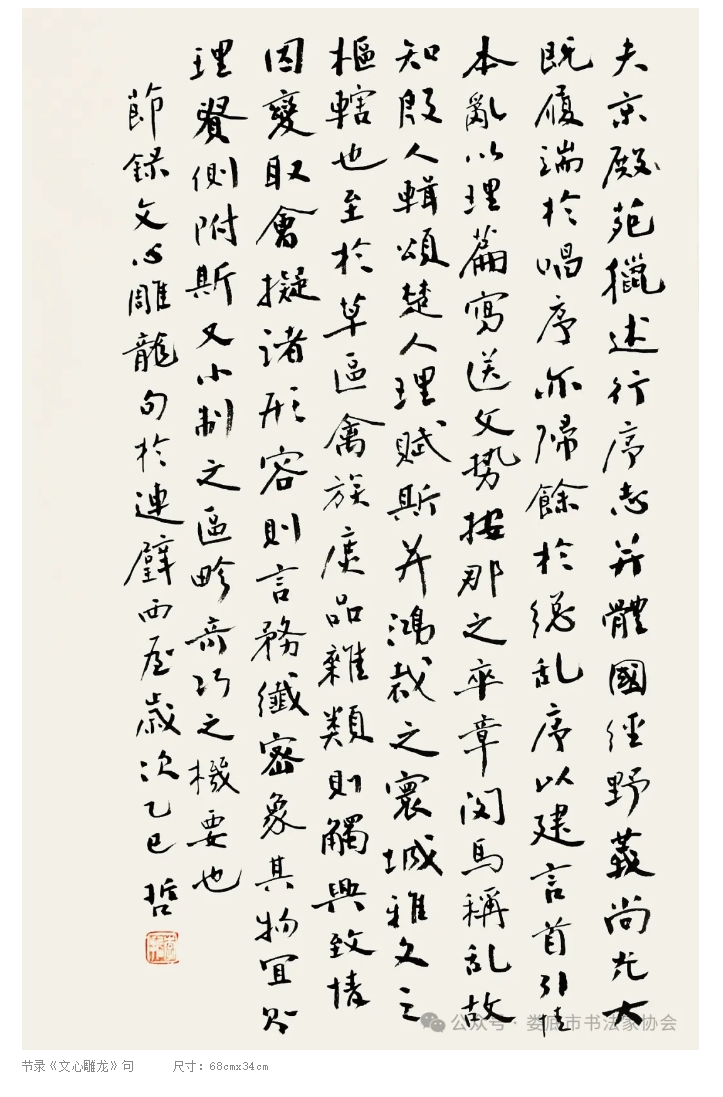 夫京殿苑獵述行序志并體國經野義尚光大
既履端於唱序亦歸餘於總亂序以建言首引情
本亂以理篇寫送文勢按那之卒章閔馬稱乱故
知殷人輯頌楚人理賦斯并鴻裁之寰城雅文之
樞轄也至於草區禽族庶品雜類則觸興致情
因變取會擬諸形容則言務纖密象其物宜則
理貴側附斯又小制之區畛奇巧之機要也
節録文心雕龍句於連璧西屋歲次乙巳 哲
公众号·娄底市书法家协会
节录《文心雕龙》句 尺寸：68cmx34cm